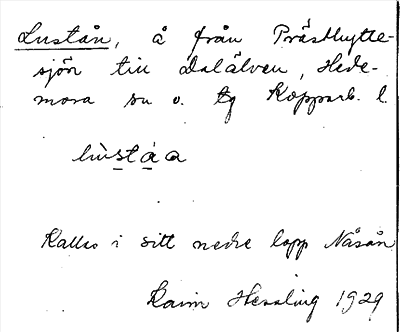 Lustån, å från Prästhytte-
sjön till Dalälven, Hede-
mora sn o. tg Kopparb. l.
lùstáa
Kallas i sitt nedre lopp Nåsån
Karin Hessling 1929